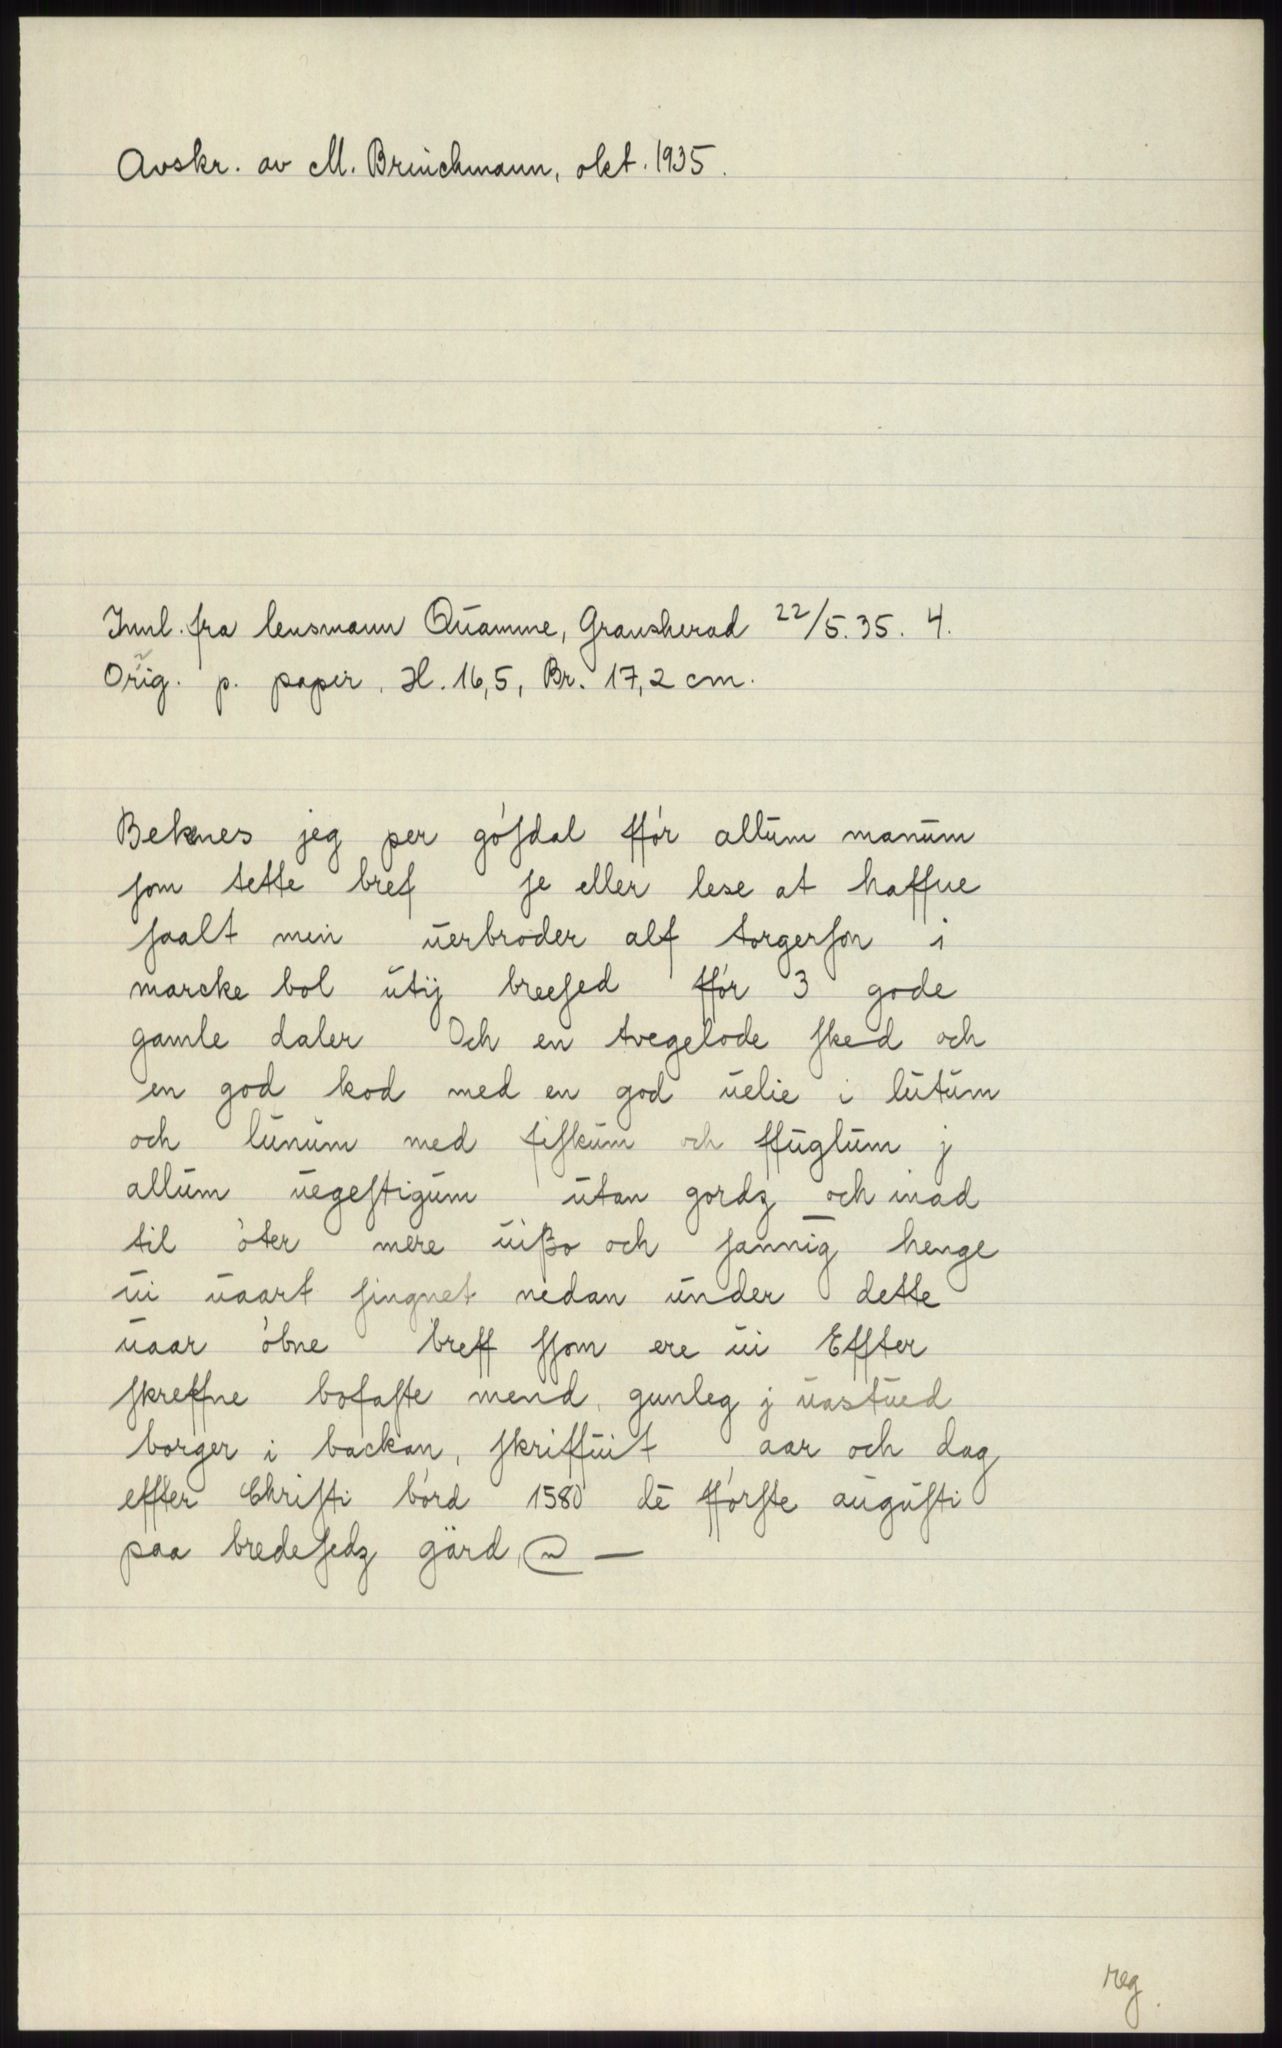 Avskr. av M. Brinchmann, okt. 1935.
Innl. fra lensmann Quamme, Gransherad 22/5. 35. 4.
Orig. p. papir. H. 16,5, Br. 17,2 cm.
Bekenes jeg per góſdal ffór allum manum
ſom tette bref ſe eller lese at haffue
ſaalt min uerbroder alf torgerſon i
marcke bol utij breeſed ffór 3 gode
gamle daler Och en tvegelode ſked och
en god kod med en god uelie i lutum
och lunum med fiſkum och ffuglum j
allum uegeſtigum utan gordz och inad
til óter mere uißo och ſannīg henge
ui uaart ſingnet nedan under dette
uaar óbne breff ſſom ere ui Effter
ſkreffne bofaſte mend, gunleg j uastued
borger i backan, ſkriffuit aar och dag
effter Chriſti bórd 1580 dē ffórſte auguſti
paa bredeſedz gård, —
reg.